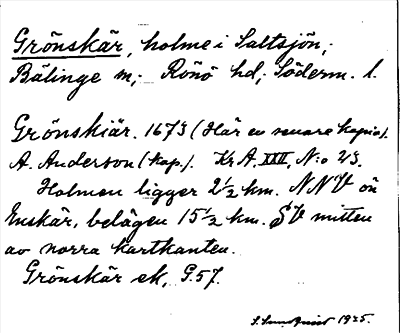 Grönskär, holme i Saltsjön,
Bälinge m; Rönö hd; Söderm. l.
Grönskiär. 1673 (Här ev senare kopia).
A. Anderson (kop.). Kr A. XXII, N:o 23.
Holmen ligger 2½ km. NNV ön
Enskär, belägen 15½ km. SV mitten
av norra kartkanten.
Grönskär ek, G.57.
S. Sundqvist 1925.